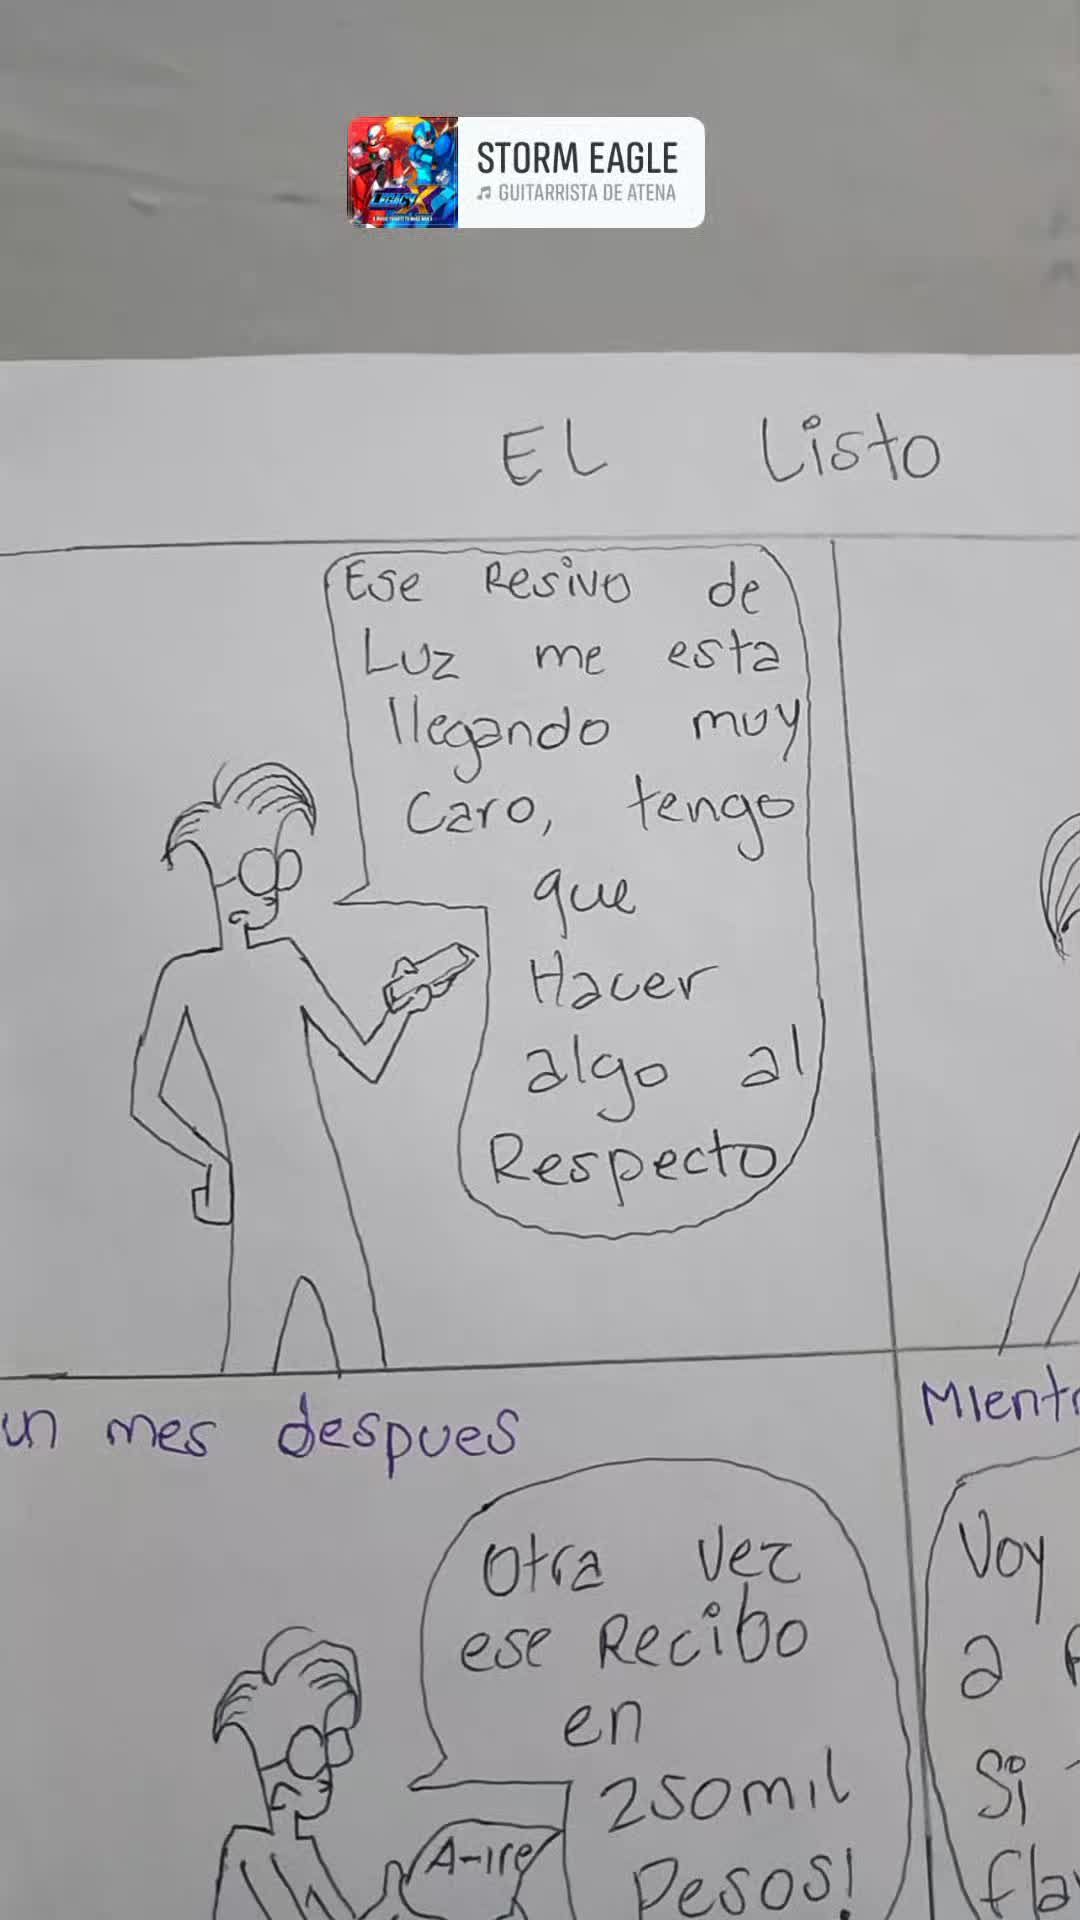 STORM EAGLE
GUITARRISTA DE ATENA
EL Listo
Ese Resivo de
Luz me esta
llegando muy
Caro, tengo
que
Hacer
algo al
Respecto
un mes despues
Otra vez
ese Recibo
en
250mil
Pesos!
A-ire
Mientr
Voy
a
Si
fla